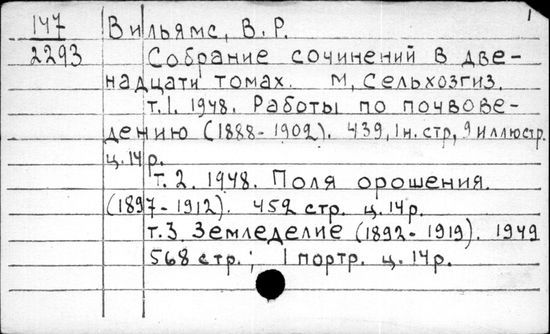 1
147 Вильямс, В.Р.
2293 Собрание сочинений в две-
надцати томах. М, Сельхозгиз.
т.1. 1948. Работы по почвове-
дению (1888-1902). 439, 1н.стр, 9 иллюстр.
ц. 14р.
т.2. 1948. Поля орошения.
(1897-1912). 452 стр. ц. 14р.
т.3. Земледелие (1892-1919). 1949
568 стр.; 1 портр. ц. 14р.